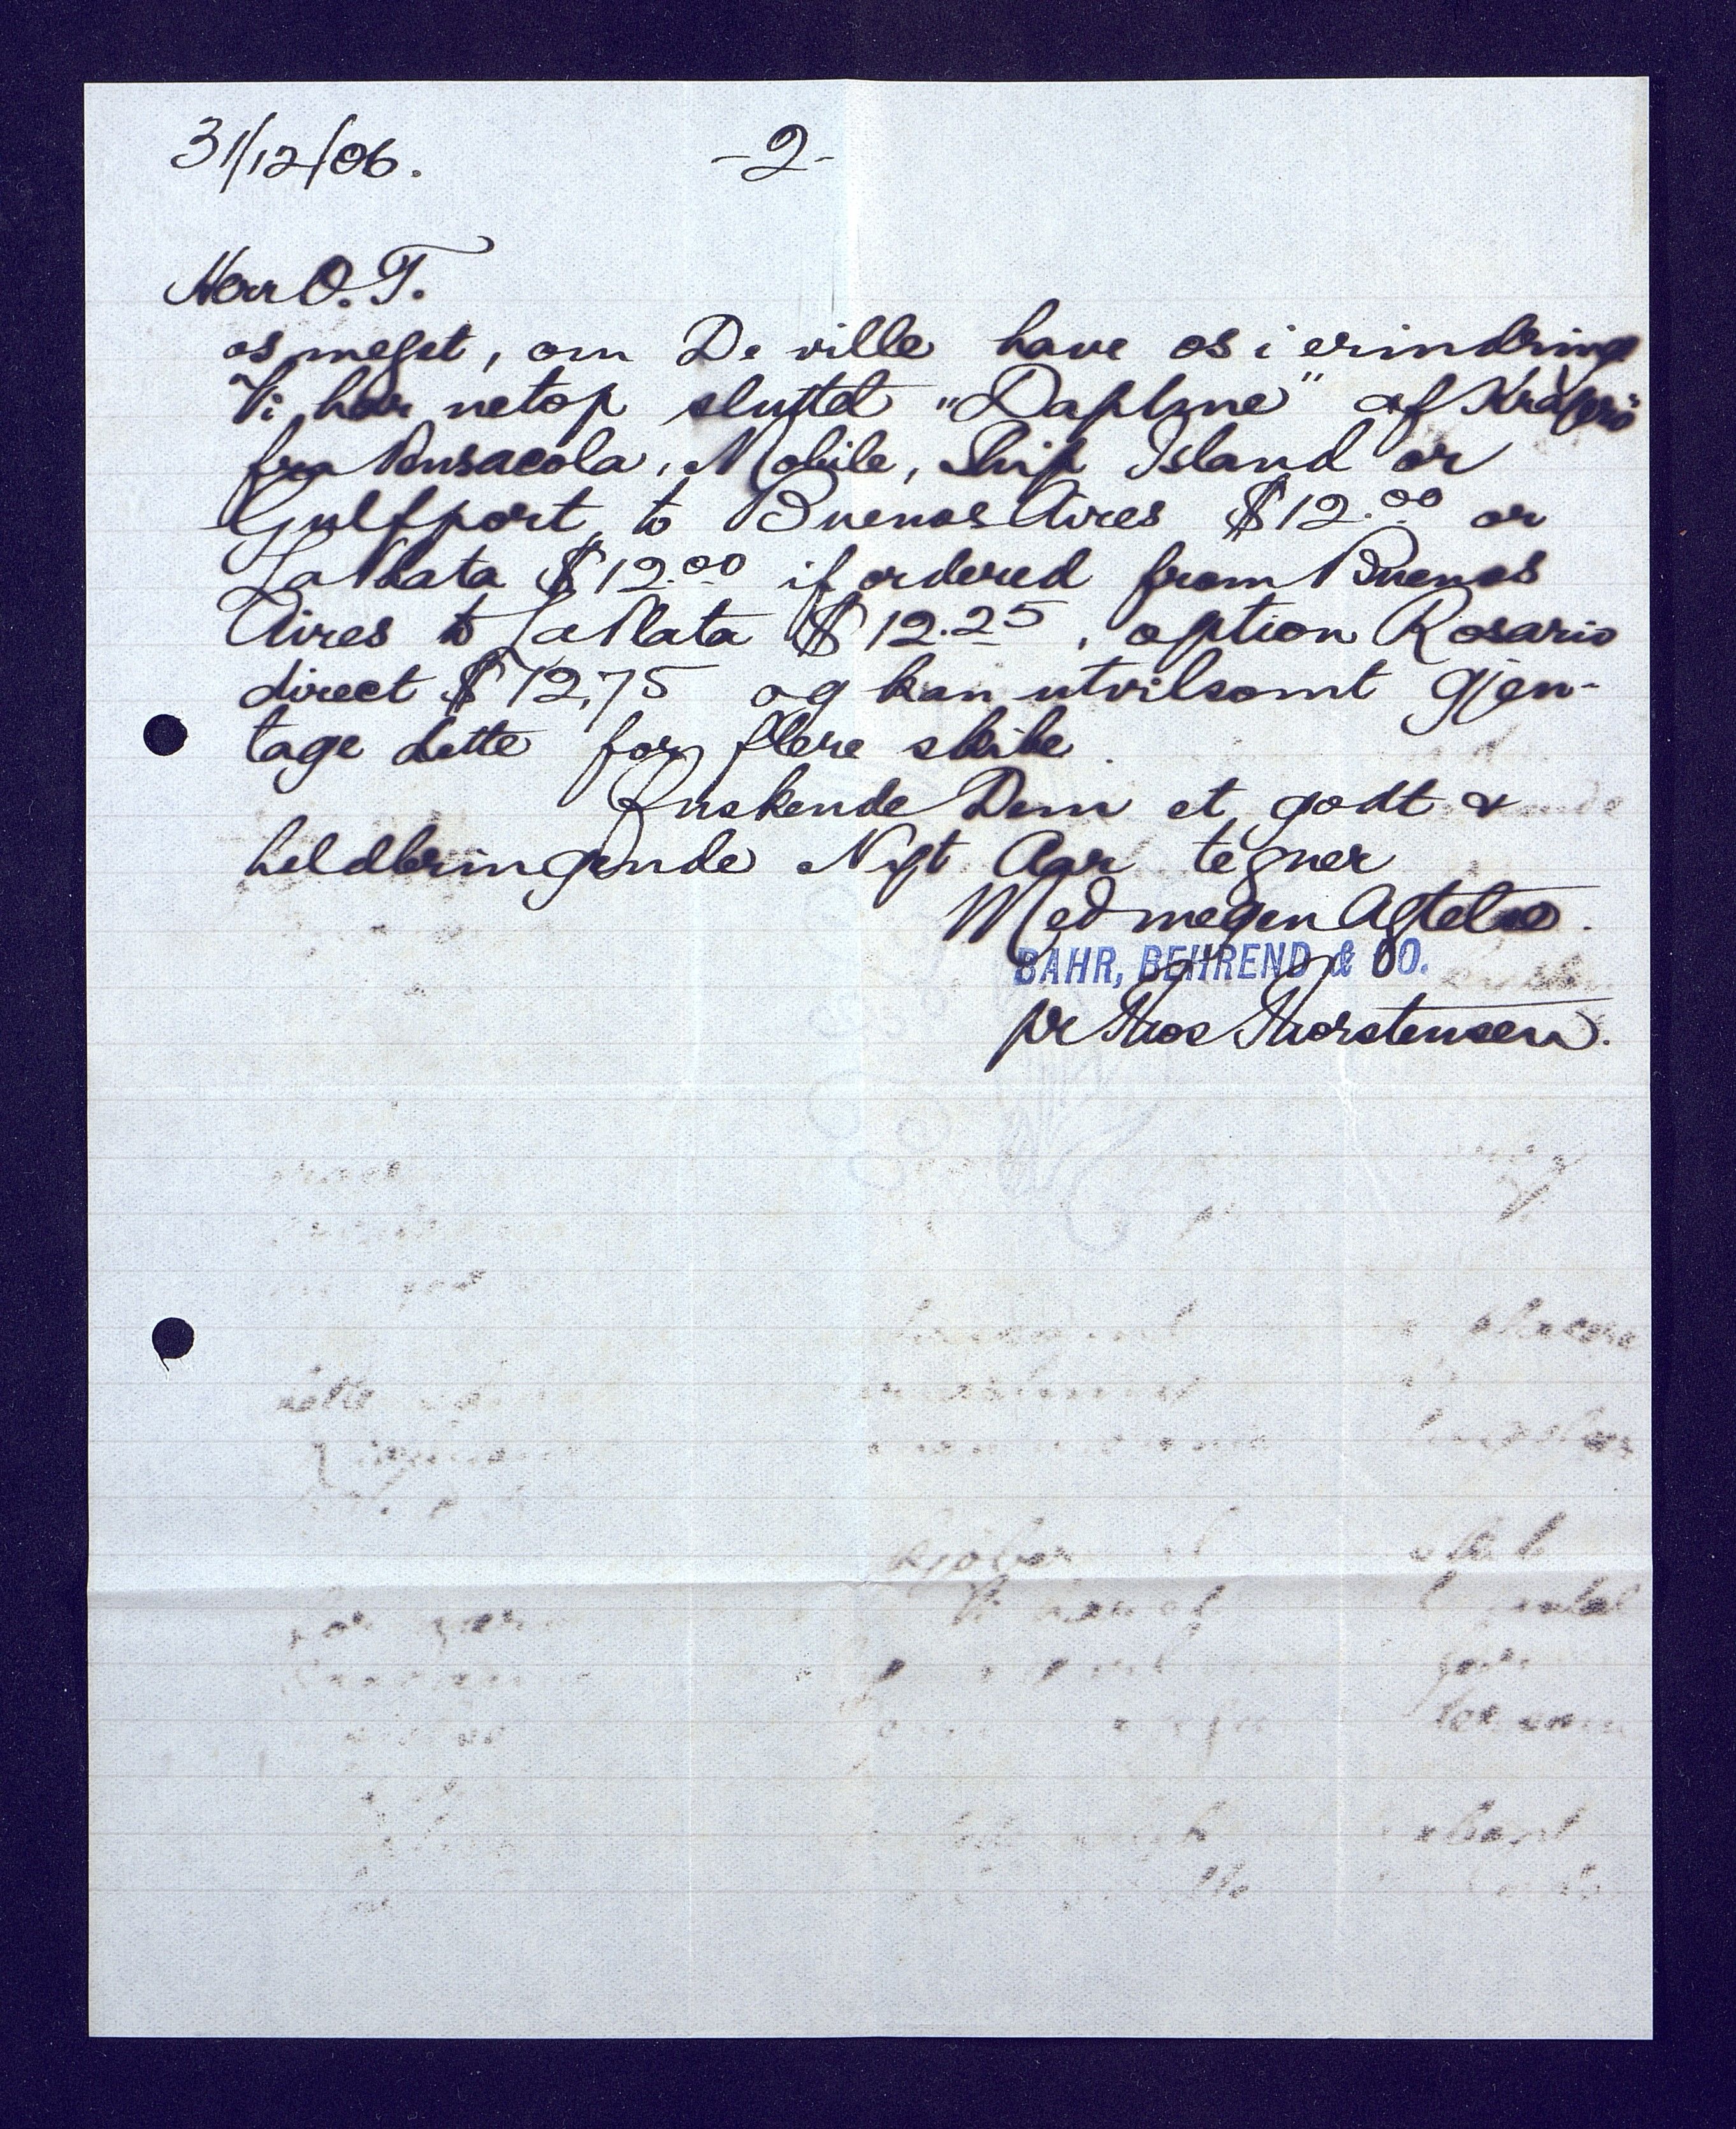 31/12/06. -2-
Herr O. T.
os meget, om De ville have os i erindring
Vi har netop sluttet "Daphne" af Kragerö
fra Pensacola, Mobile, Ship Island or
Gulfport, to Buenos Aires $12.00 or
La Plata $12.00 if ordered from Buenos
Aires to La Plata $12.25, option Rosario
direct $12,75 og kan utvilsomt gjen-
tage dette for flere skibe.
Önskende Dem et godt &
heldbringende Nyt Aar tegner
Med megen Agtelse.
BAHR, BEHREND & CO.
pr Thos Thorstensen.